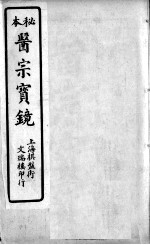 秘本
醫宗寶鏡
上海棋盤街
文瑞樓印行